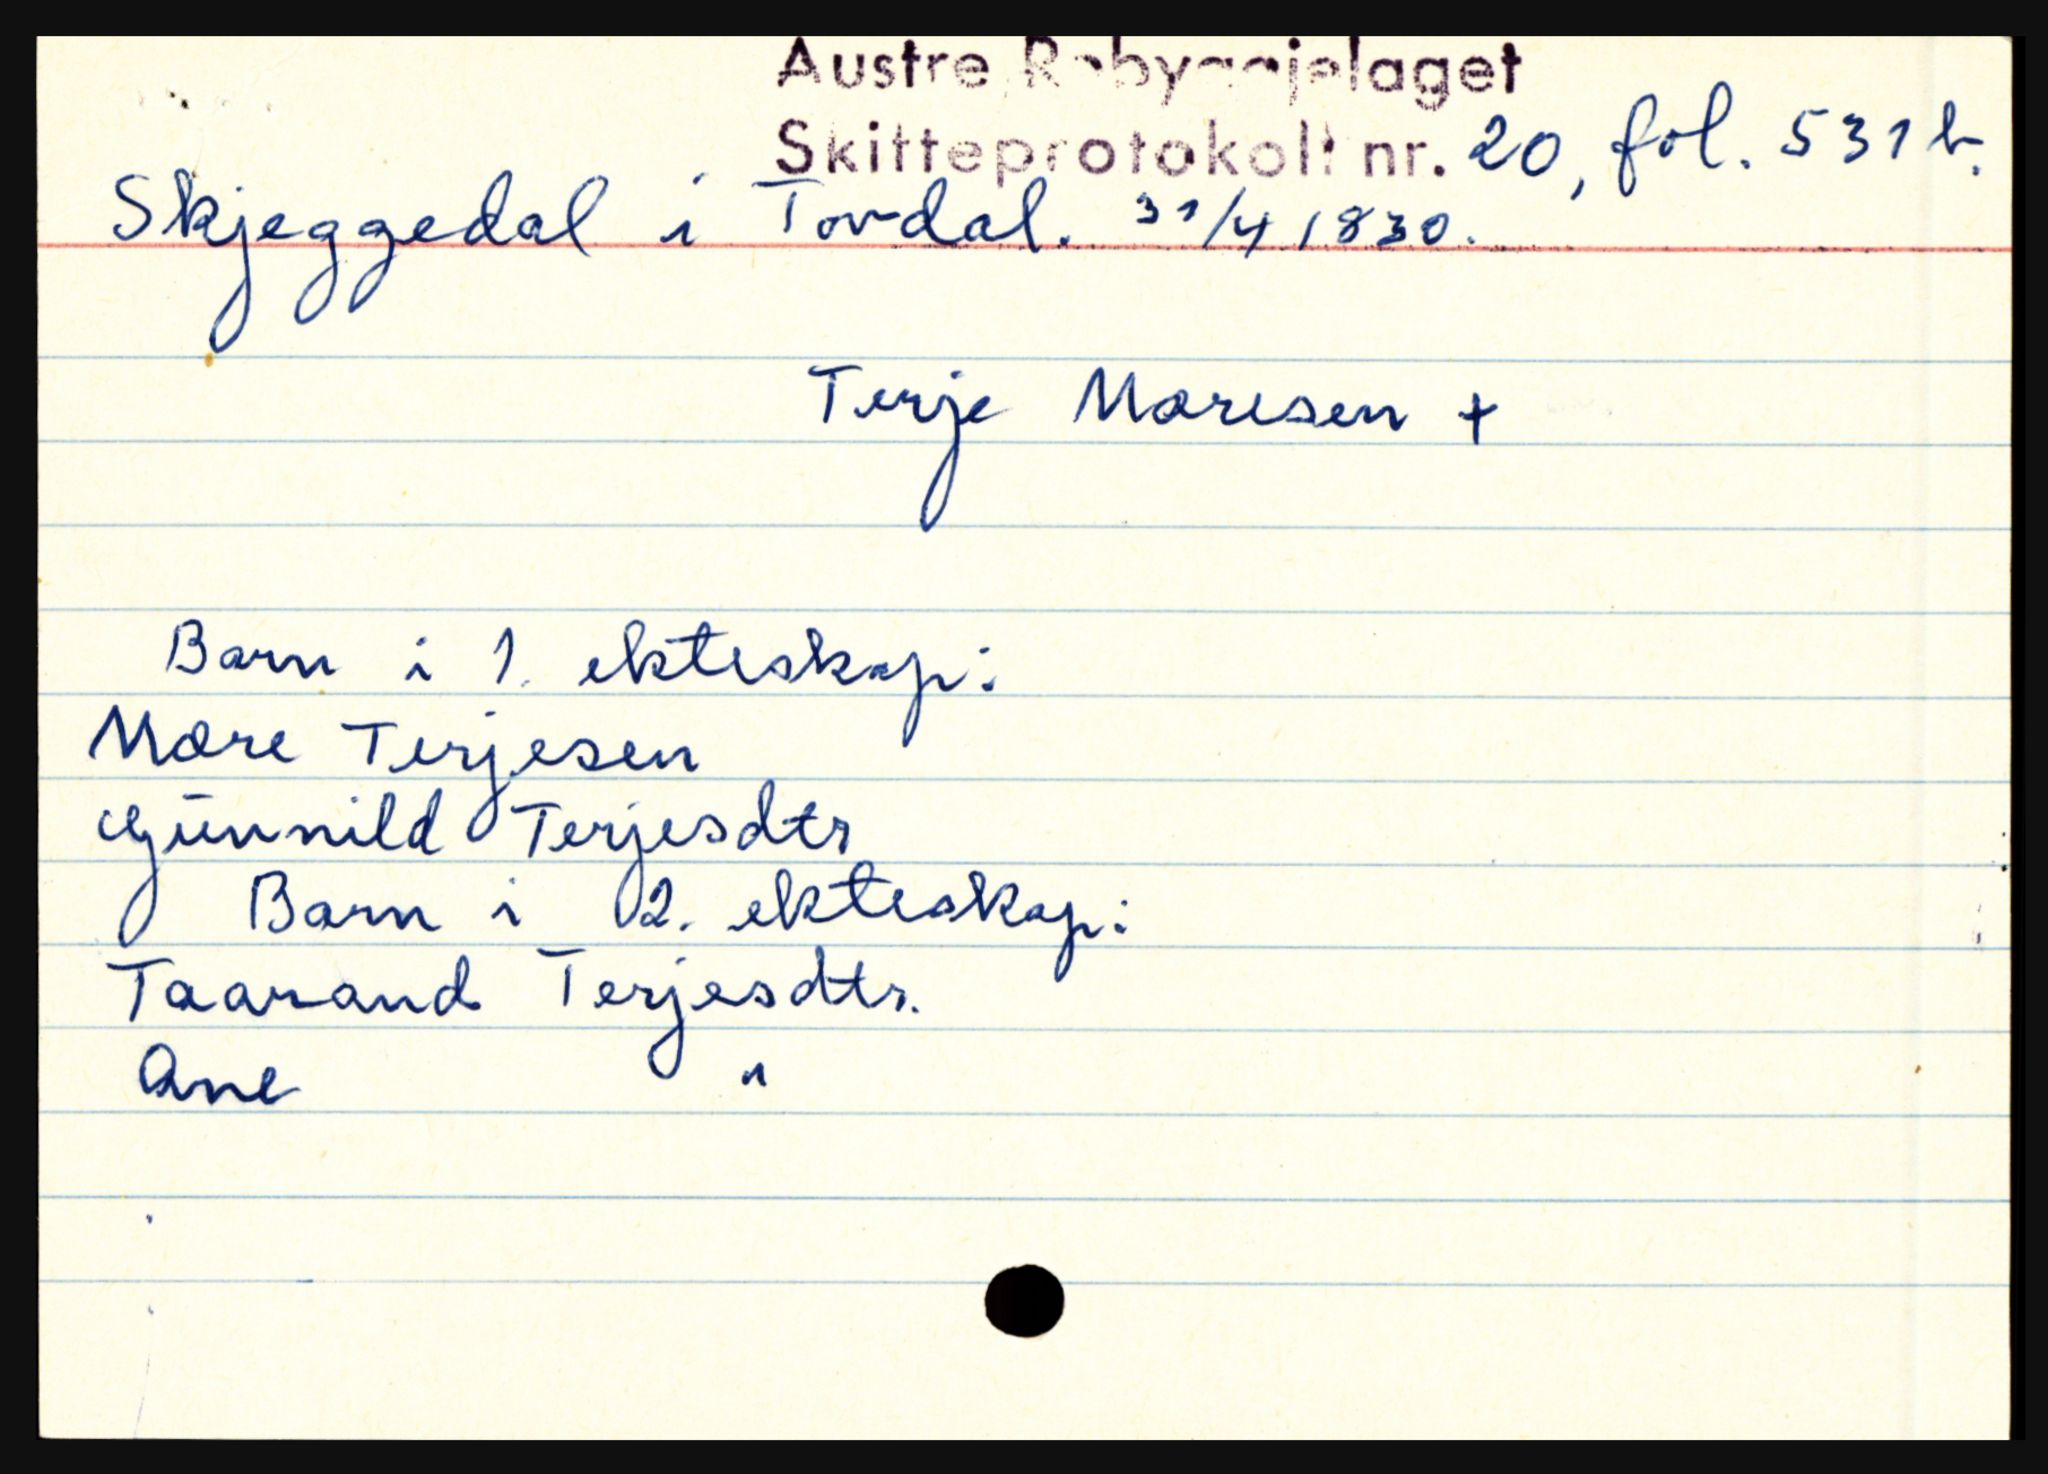 Austre Rabyggjelaget
Skifteprotokoll nr. 20, fol. 531 b.
Skjeggedal i Tovdal. 31/4 1830.
Terje Moresen +
Barn i 1. ekteskap:
More Terjesen
Gunnild Terjesdtr
Barn i 2. ekteskap:
Taarand Terjesdtr.
Ane "